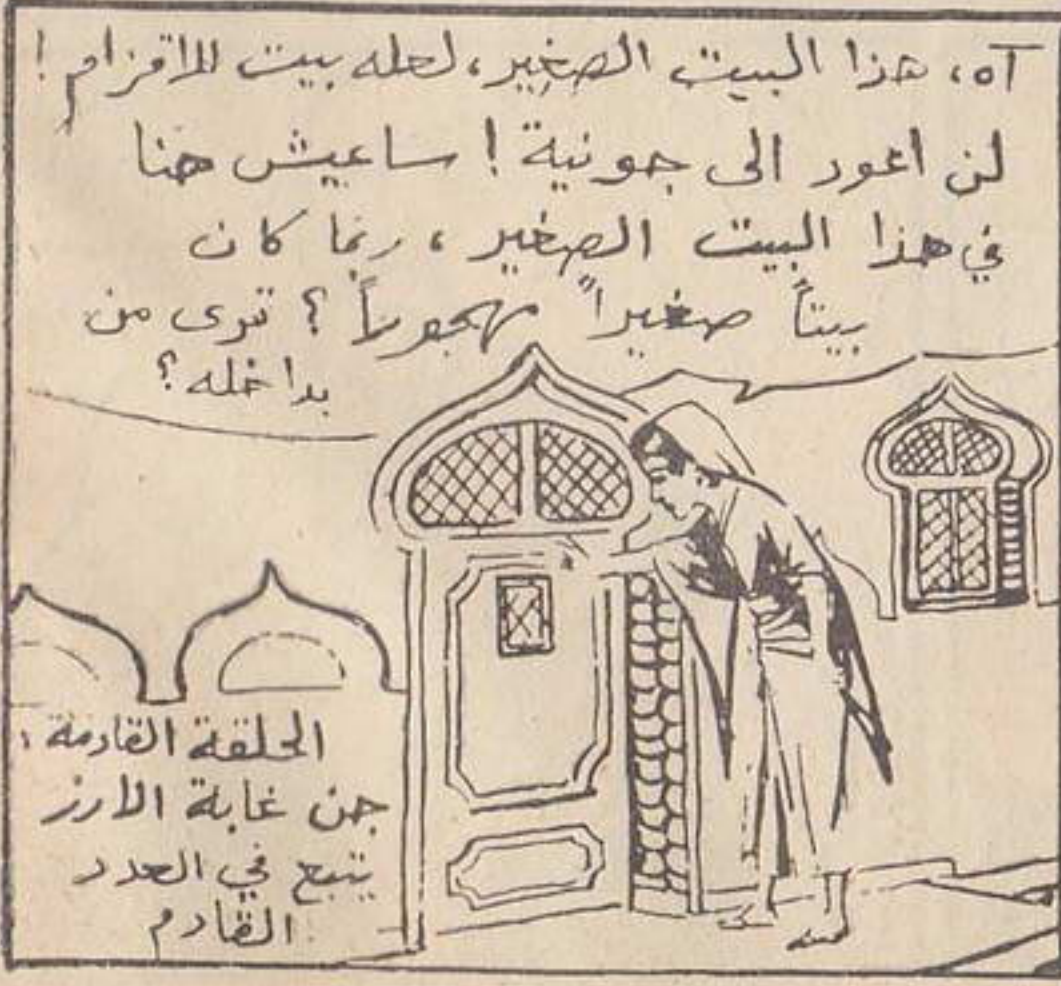 آه، هذا البيت الصغير، لعله بيت للاقزام!
لن اعود الى جونية! ساعيش هنا
في هذا البيت الصغير، ربما كان
بيتاً صغيراً مهجوراً؟ ترى من
بداخله؟
الحلقة القادمة:
جن غابة الارز
يتبع في العدد
القادم